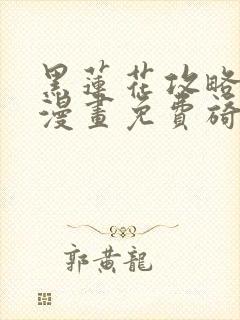 黑蓮花攻略
漫畫免費
郭黃龍